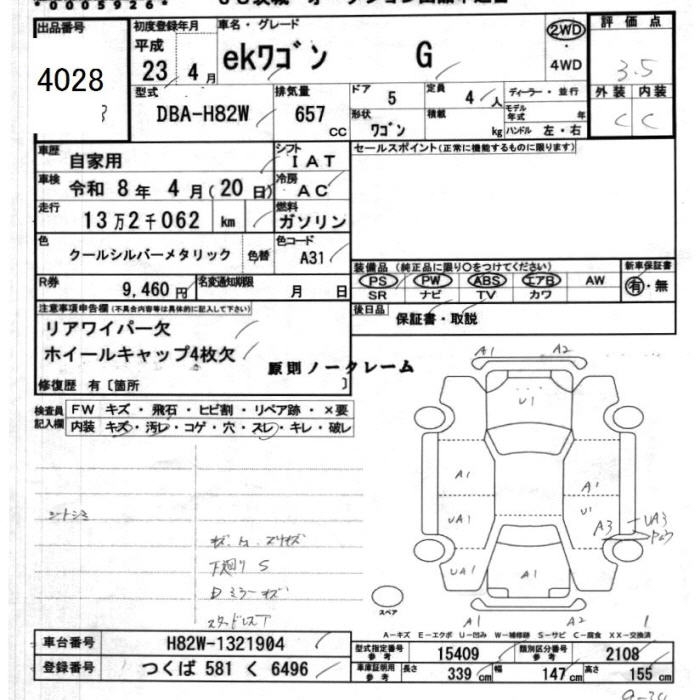 *0005926*
出品番号
4028
初度登録年月
平成
23年 4月
車名・グレード
ekワゴン G
2WD
・
4WD
評価点
3.5
外装 内装
C C
型式
DBA-H82W
排気量
657 cc
ドア 5
定員 4人
形状 ワゴン
積載 kg
ディーラー・並行
モデル年式 年
ハンドル 左・右
車歴 自家用
シフト IAT
車検 令和 8年 4月(20日)
冷房 AC
走行 13万2千062 km
燃料 ガソリン
色 クールシルバーメタリック 色替
色コード A31
R券 9,460円
名変通知期限 月 日
セールスポイント(正常に機能するものに限ります)
装備品(純正品に限り○をつけてください)
PS PW ABS エアB AW
SR ナビ TV カワ
新車保証書
有・無
後日品 保証書・取説
注意事項申告欄(不具合内容等は具体的に記入して下さい)
リアワイパー欠
ホイールキャップ4枚欠
原則ノークレーム
修復歴 有〔箇所 〕
検査員記入欄
FW キズ・飛石・ヒビ割・リペア跡・×要
内装 キズ・汚レ・コゲ・穴・スレ・キレ・破レ
シートシミ
下廻りS
Dミラーキズ
スタッドレスT
A1 A2
U1
A1 A1
UA1 U1
A3 UA3
UA1
A1
スペア
A1 A2 1
A-キズ E-エクボ U-凹み W-補修跡 S-サビ C-腐食 XX-交換済
車台番号 H82W-1321904
登録番号 つくば 581 く 6496
型式指定番号 参考 15409
類別区分番号 参考 2108
車庫証明用 参考 長さ 339cm 幅 147cm 高さ 155cm